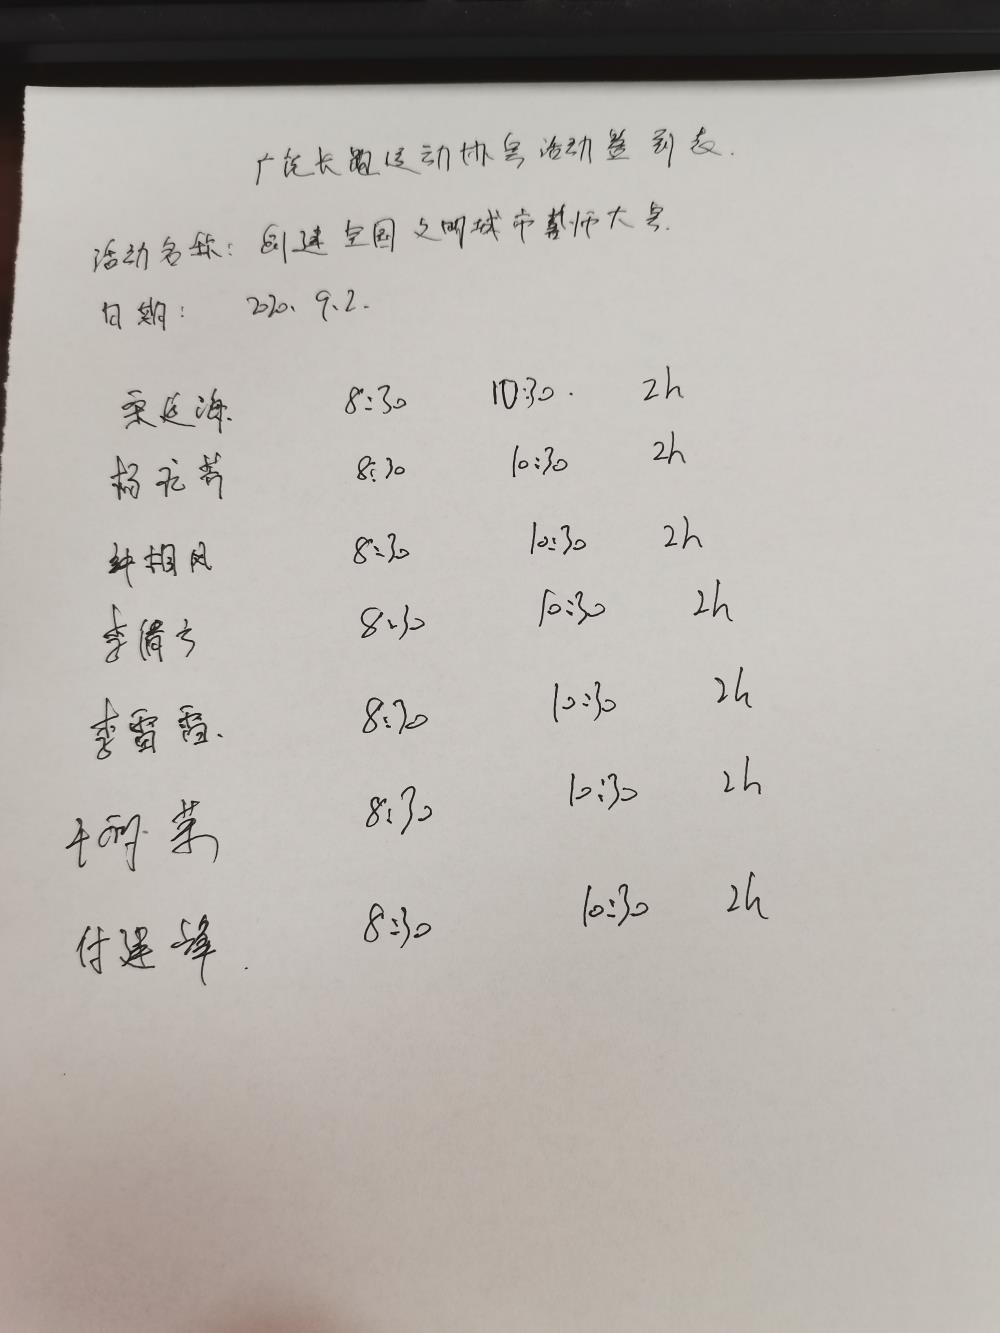 广饶长跑运动协会活动签到表.
活动名称: 创建全国文明城市誓师大会.
日期: 2020.9.2.
延海. 8:30 10:30. 2h
杨 芳 8:30 10:30 2h
相风 8:30 10:30 2h
李倩 8:30 10:30 2h
李雷雷. 8:30 10:30 2h
荣 8:30 10:30 2h
付建峰. 8:30 10:30 2h